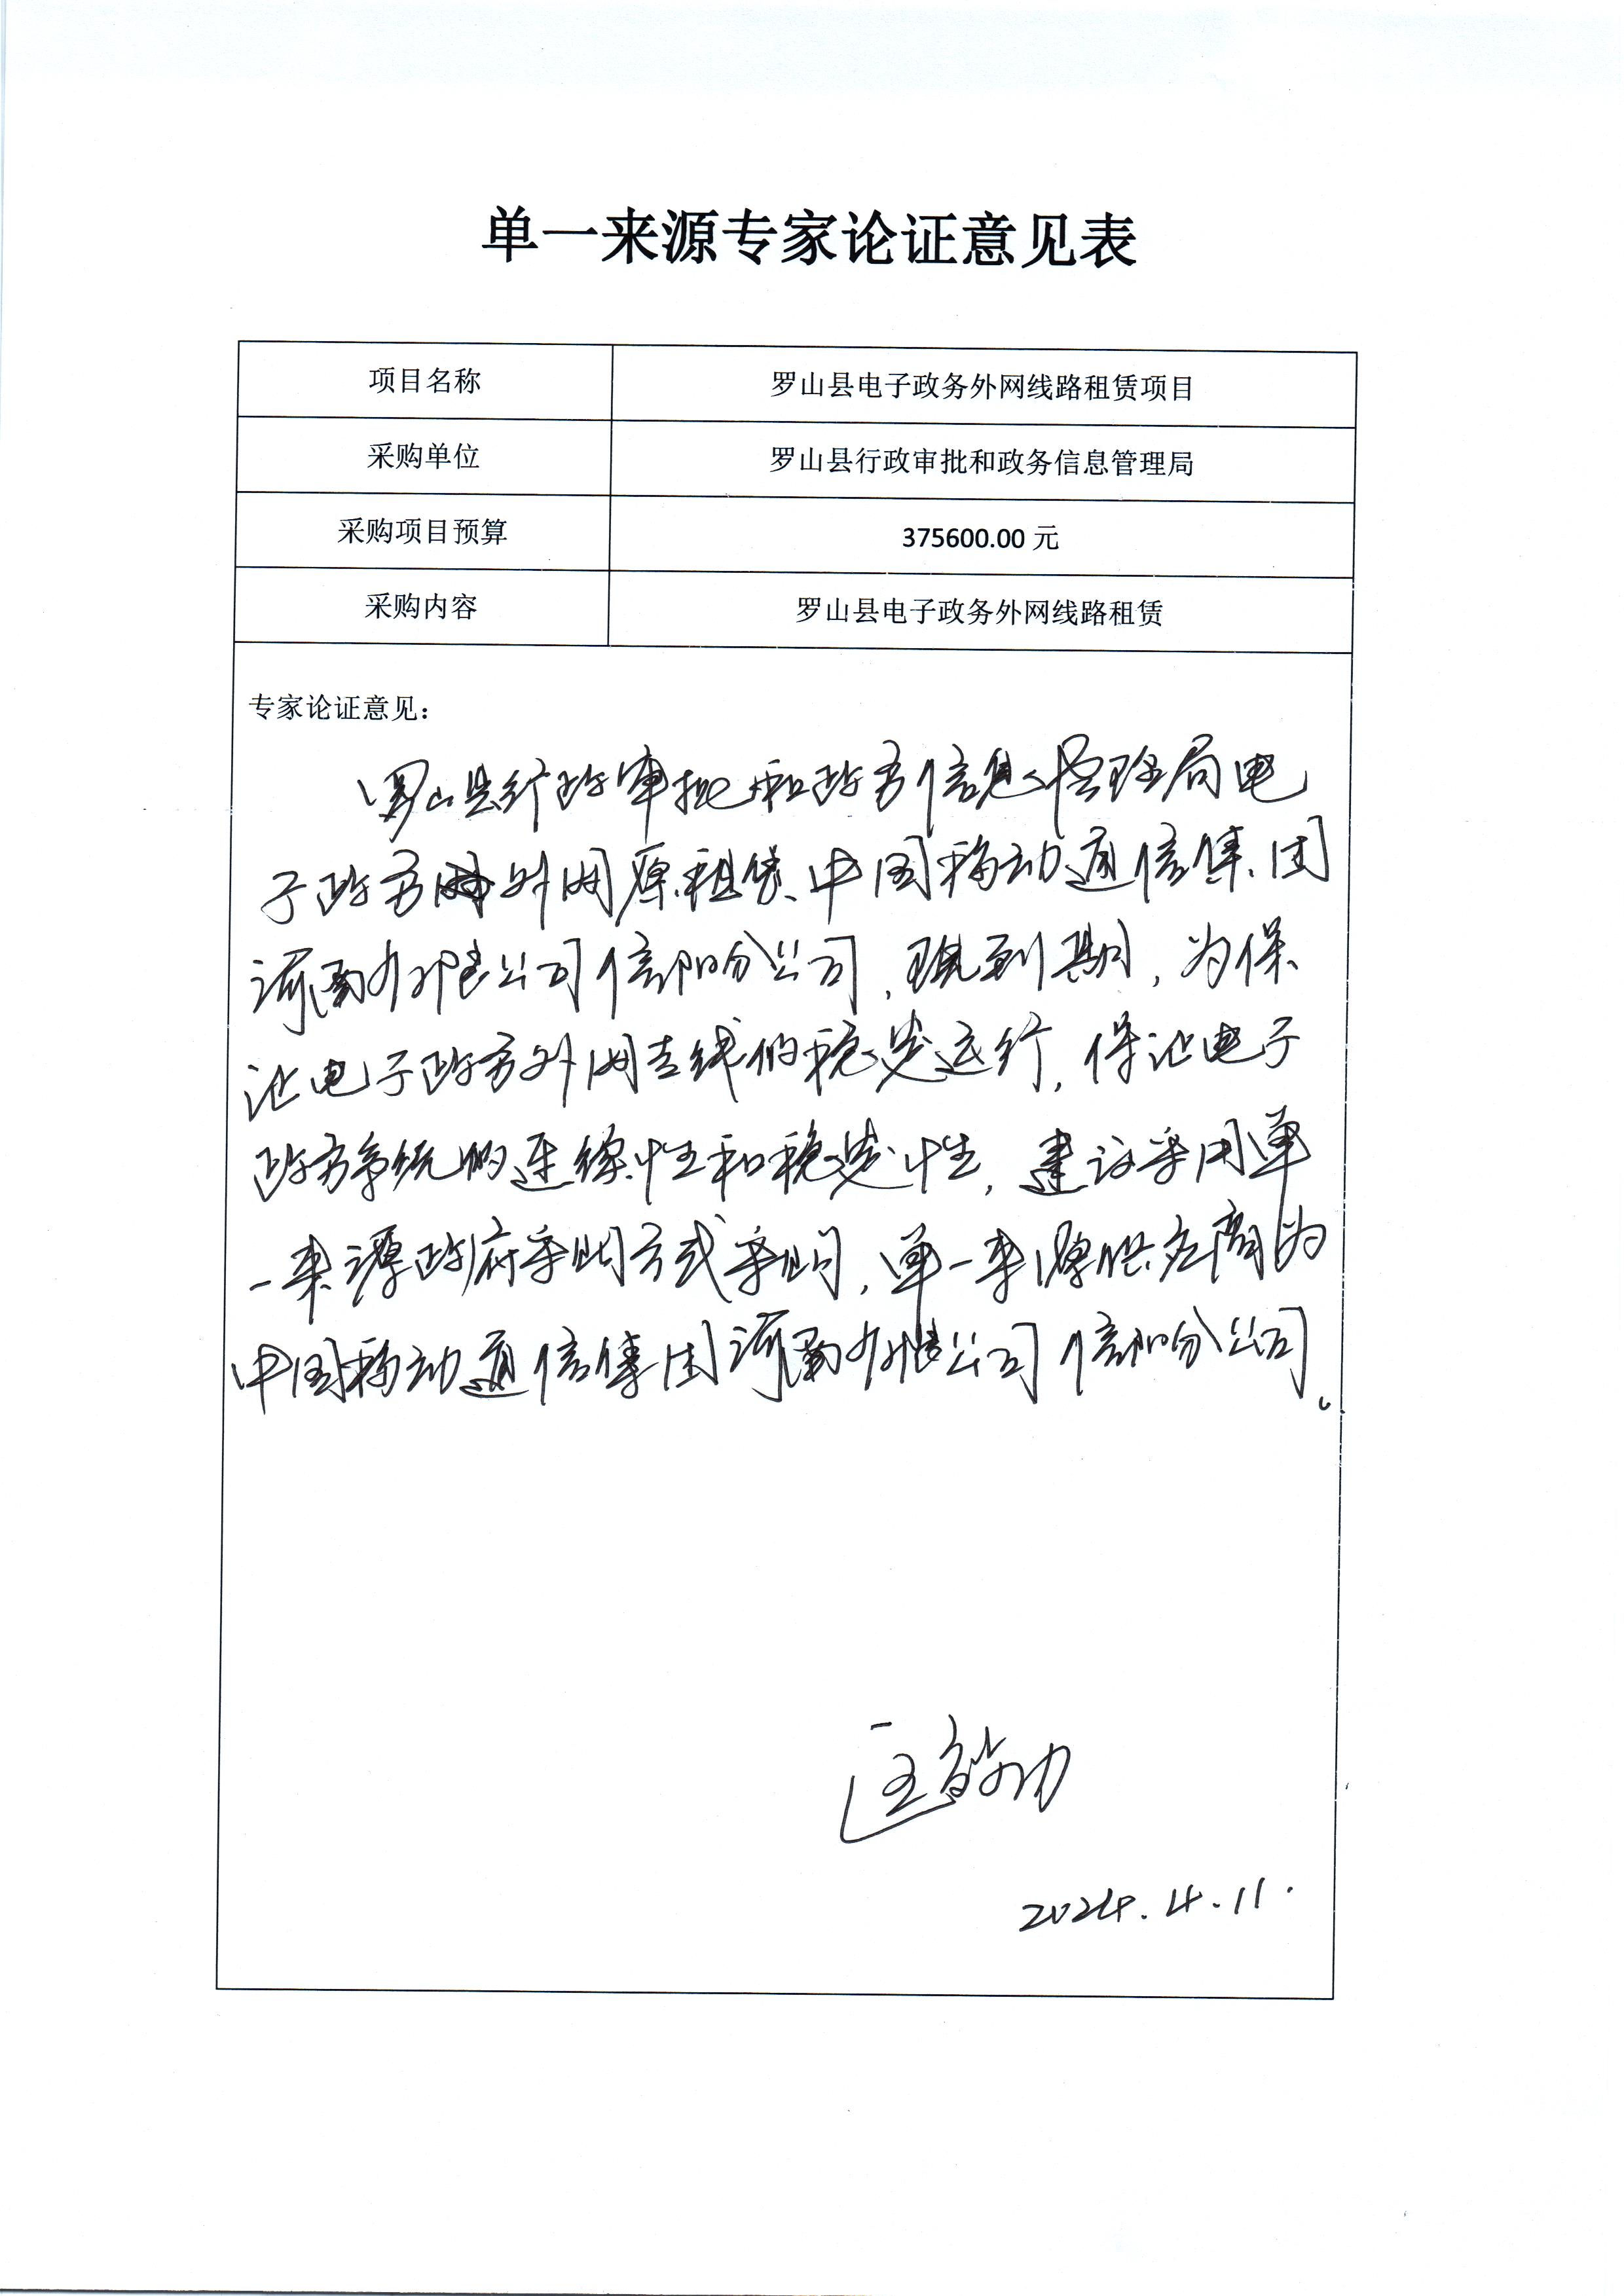 单一来源专家论证意见表
项目名称 罗山县电子政务外网线路租赁项目
采购单位 罗山县行政审批和政务信息管理局
采购项目预算 375600.00 元
采购内容 罗山县电子政务外网线路租赁
专家论证意见：
罗山县行政审批和政务信息管理局电
子政务外网原租赁中国移动通信集团
河南有限公司信阳分公司，现到期，为保
证电子政务外网专线的稳定运行，保证电子
政务系统的连续性和稳定性，建议采用单
一来源政府采购方式采购，单一来源供应商为
中国移动通信集团河南有限公司信阳分公司。
2024.4.11.